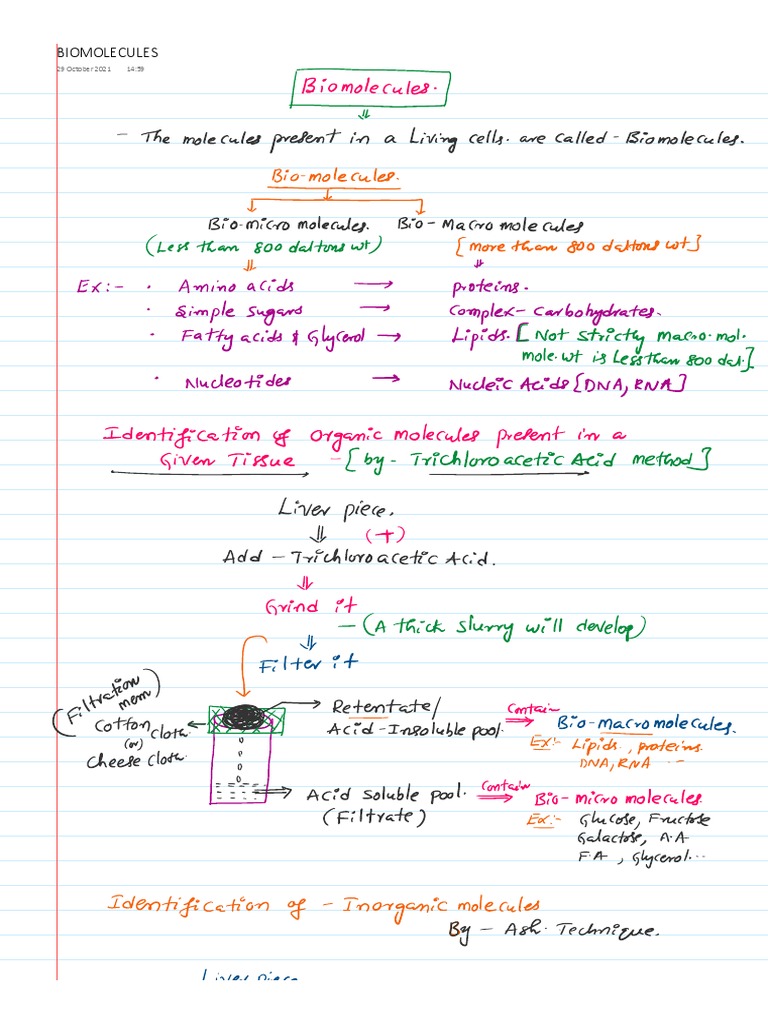 BIOMOLECULES
29 October 2021 14:59
Biomolecules.
- The molecules present in a Living cells. are called - Biomolecules.
Bio-molecules.
Bio-micro molecules. Bio - Macro molecules
(Less than 800 daltons wt) [more than 800 daltons wt]
Ex:- • Amino acids → proteins.
• Simple sugars → Complex - Carbohydrates.
• Fatty acids & Glycerol → Lipids. [Not strictly macro. mol.
mole. wt is Less than 800 dal.]
• Nucleotides → Nucleic Acids [DNA, RNA]
Identification of organic molecules present in a
Given Tissue - [by - Trichloroacetic Acid method]
Liver piece.
(+)
Add - Trichloroacetic Acid.
Grind it
- (A thick slurry will develop)
Filter it
(Filtration
mem)
Cotton cloth.
(or)
Cheese cloth.
Retentate/
Acid - Insoluble pool. Contain Bio-macromolecules.
Ex:- Lipids, proteins.
DNA, RNA ...
Acid soluble pool. Contain Bio-micro molecules.
(Filtrate)
Ex:- Glucose, Fructose
Galactose, A.A
F.A, Glycerol...
Identification of - Inorganic molecules
By - Ash. Technique.
Liver piece